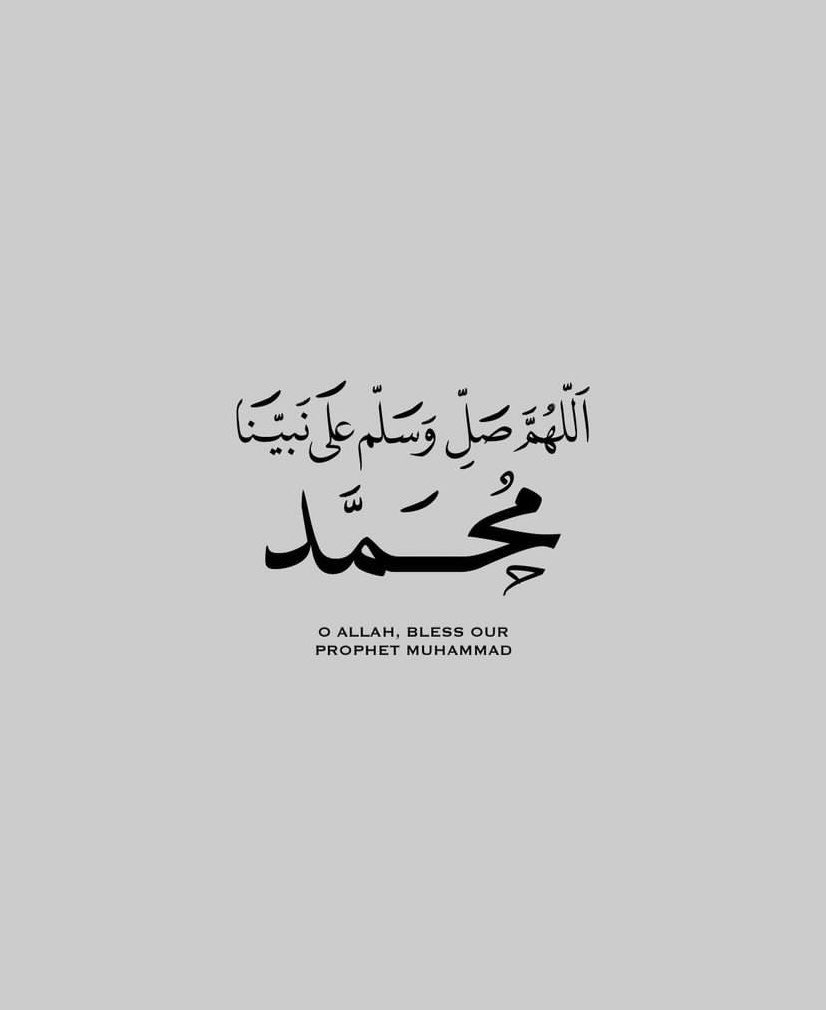 اَللّٰهُمَّ صَلِّ وَسَلّم عَلَى نَبيَّنَا
مُحَمَّد
O ALLAH, BLESS OUR
PROPHET MUHAMMAD